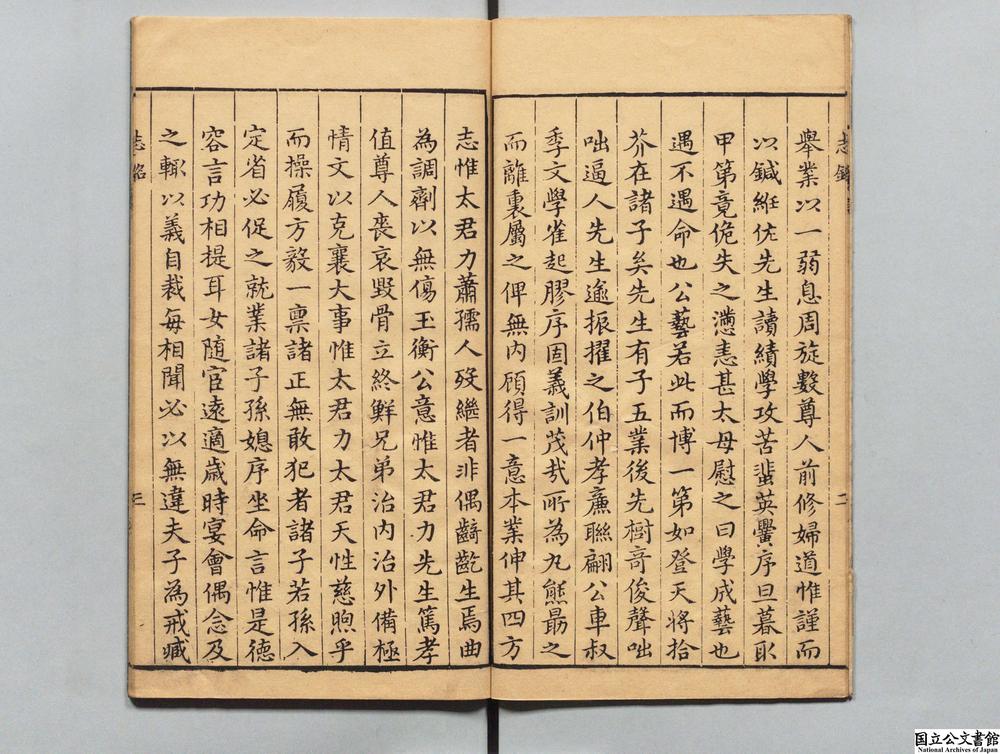 舉業以一弱息周旋數尊人前修婦道惟謹而
以鍼絍佐先生讀績學攻苦蜚英黌序旦暮取
甲第竟佹失之懣恚甚太母慰之曰學成藝也
遇不遇命也公藝若此而博一第如登天將拾
芥在諸子矣先生有子五業後先樹奇俊聲咄
咄逼人先生遂振擢之伯仲孝廉聯翩公車叔
季文學雀起膠序固義訓茂哉所為丸熊勗之
而離裏屬之俾無內顧得一意本業伸其四方
志惟太君力蕭孺人歿繼者非偶齮齕生焉曲
為調劑以無傷玉衡公意惟太君力先生篤孝
值尊人喪哀毀骨立終鮮兄弟治內治外備極
情文以克襄大事惟太君力太君天性慈煦乎
而操履方毅一稟諸正無敢犯者諸子若孫入
定省必促之就業諸子孫媳序坐命言惟是德
容言功相提耳女隨宦遠適歲時宴會偶念及
之輒以義自裁每相聞必以無違夫子為戒臧
志銘
二
志銘
三
国立公文書館
National Archives of Japan